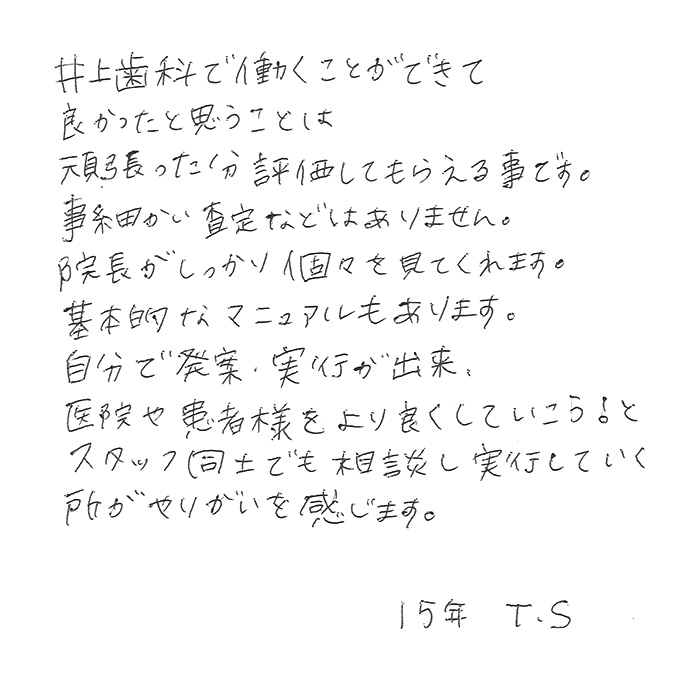 井上歯科で働くことができて
良かったと思うことは
頑張った分評価してもらえる事です。
事細かい査定などはありません。
院長がしっかり個々を見てくれます。
基本的なマニュアルもあります。
自分で発案・実行が出来、
医院や患者様をより良くしていこう!と
スタッフ同士でも相談し実行していく
所がやりがいを感じます。
15年 T.S